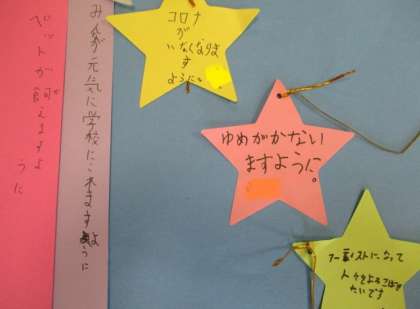 ペットが飼えますように
みんなが元気に学校にこれますように
コロナ
が
いなくなりま
す
ように
ゆめがかない
ますように。
アーティストになって
人々をよろこばせ
たいです